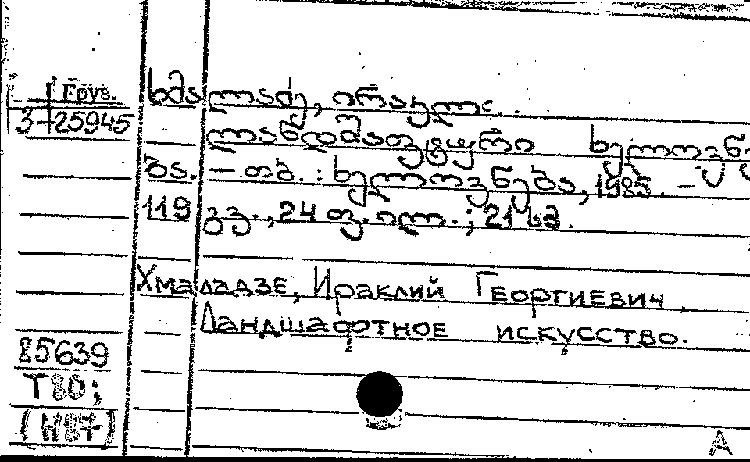 Груз.
3-25945
ხმალაძე, ირაკლი.
ლანდშაფტური ხელოვნე
ბა. – თბ. : ხელოვნება, 1985. –
119 გვ., 24 ფ. ილ. ; 21 სმ.
Хмаладзе, Ираклий Георгиевич.
Ландшафтное искусство.
85639
Т 80;
(Н87)
А